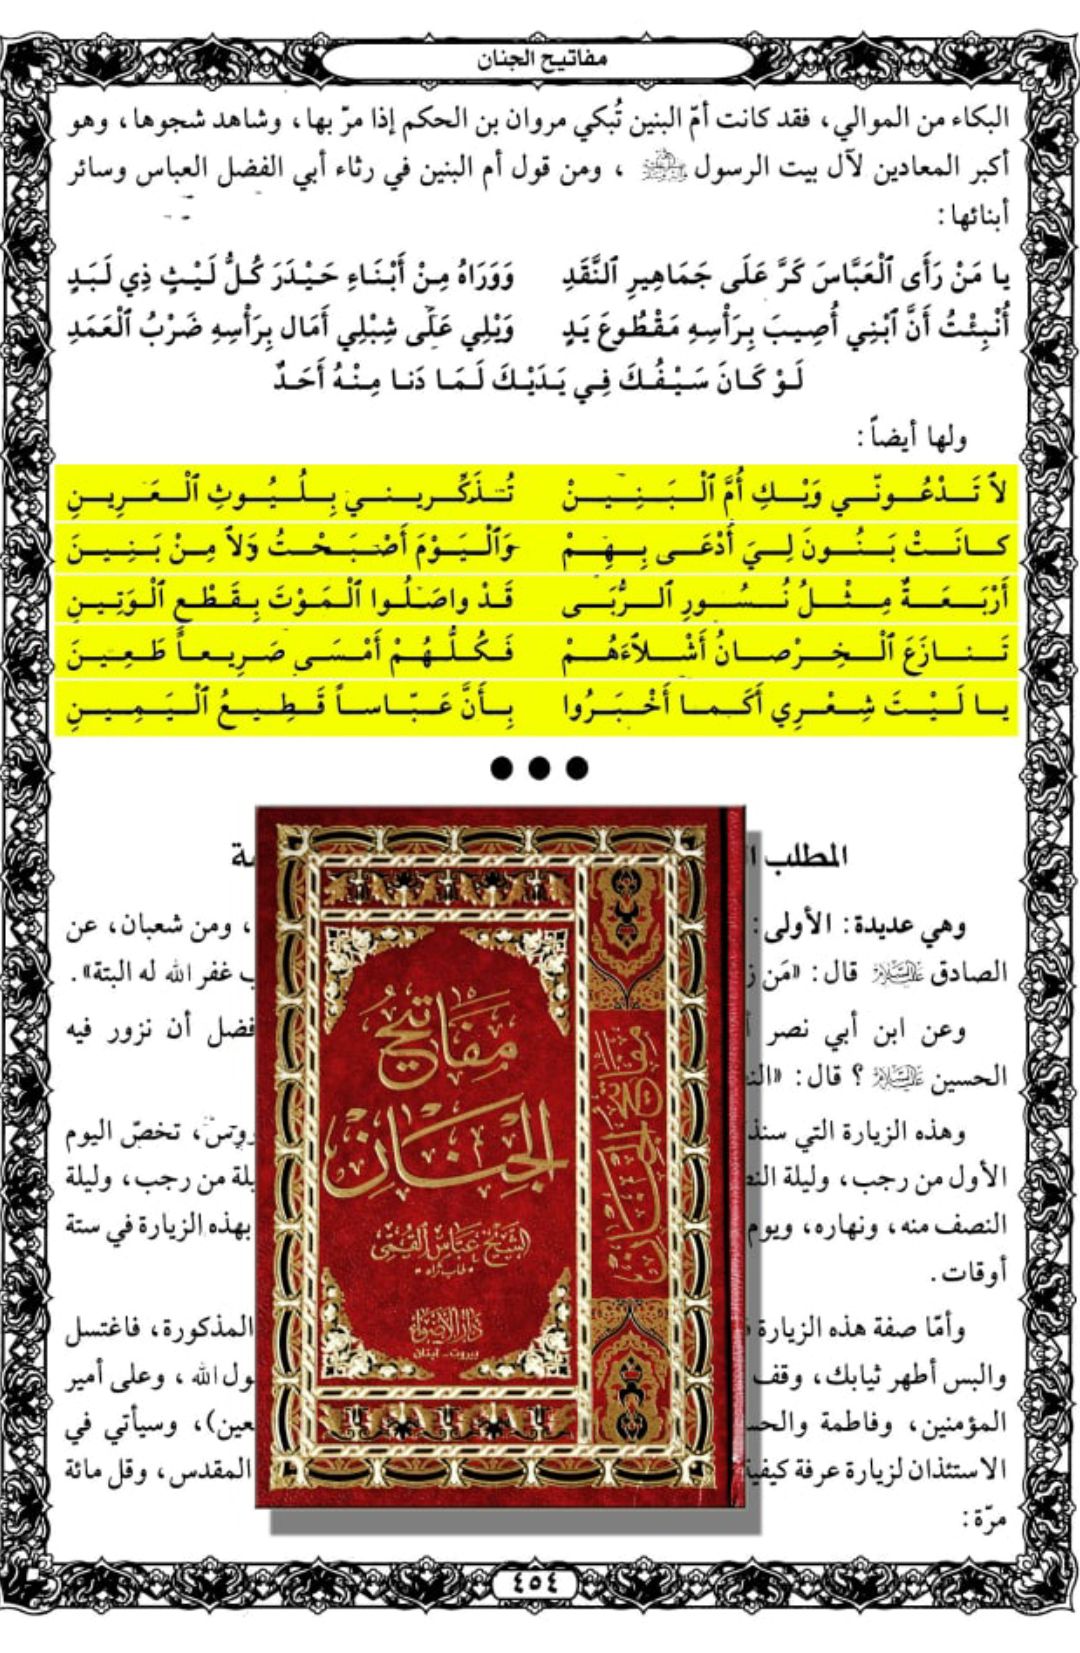 مفاتيح الجنان
البكاء من الموالي، فقد كانت أمّ البنين تُبكي مروان بن الحكم إذا مرّ بها، وشاهد شجوها، وهو
أكبر المعادين لآل بيت الرسول ﷺ ، ومن قول أم البنين في رثاء أبي الفضل العباس وسائر
أبنائها:
يا مَنْ رَأَى ٱلْعَبَّاسَ كَرَّ عَلَى جَمَاهِيرِ ٱلنَّقَدِ وَوَرَاهُ مِنْ أَبْنَاءِ حَيْدَرَ كُلُّ لَيْثٍ ذِي لَبَدٍ
أُنْبِئْتُ أَنَّ ٱبْنِي أُصِيبَ بِرَأْسِهِ مَقْطُوعَ يَدٍ وَيْلِي عَلَى شِبْلِي أَمَال بِرَأْسِهِ ضَرْبُ ٱلْعَمَدِ
لَوْ كَانَ سَيْفُكَ فِي يَدَيْكَ لَمَا دَنا مِنْهُ أَحَدٌ
ولها أيضاً:
لاٰ تَدْعُونّي وَيْكِ أُمَّ ٱلْبَنِينْ تُذَكِّريني بِلُيُوثِ ٱلْعَرِينِ
كانَتْ بَنُونَ لِيَ أُدْعَى بِهِمْ وَٱلْيَوْمَ أَصْبَحْتُ وَلاٰ مِنْ بَنِينَ
أَرْبَعَةٌ مِثْلُ نُسُورِ ٱلرُّبَى قَدْ واصَلُوا ٱلْمَوْتَ بِقَطْعِ ٱلْوَتِينِ
تَنازَعَ ٱلْخِرْصانُ أَشْلاٰءَهُمْ فَكُلُّهُمْ أَمْسَى صَرِيعاً طَعِينَ
يا لَيْتَ شِعْرِي أَكَما أَخْبَرُوا بِأَنَّ عَبّاساً قَطِيعُ ٱلْيَمِينِ
المطلب
وهي عديدة: الأولى: ، ومن شعبان، عن
الصادق عليه السلام قال: «مَن غفر الله له البتة».
وعن ابن أبي نصر أن نزور فيه
الحسين عليه السلام ؟ قال:
وهذه الزيارة التي ، تخصّ اليوم
الأول من رجب، وليلة من رجب، وليلة
النصف منه، ونهاره، ويوم بهذه الزيارة في ستة
أوقات.
وأمّا صفة هذه الزيارة المذكورة، فاغتسل
والبس أطهر ثيابك، وقف الله، وعلى أمير
المؤمنين، وفاطمة ، وسيأتي في
الاستئذان لزيارة عرفة المقدس، وقل مائة
مرّة:
مفاتيح
الجنان
الشيخ عباس القمي
طاب ثراه
دار الأضواء
بيروت - لبنان
مفاتيح الجنان
٤٥٤